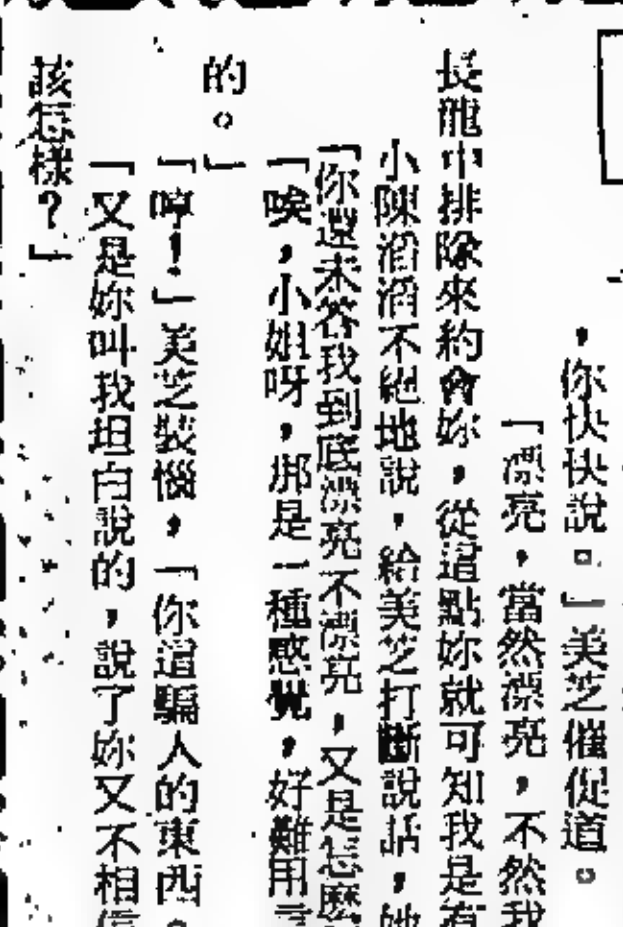 ，你快快說。」美芝催促道。
「漂亮，當然漂亮，不然我
長龍中排除來約會妳，從這點妳就可知我是有
小陳滔滔不絕地說，給美芝打斷說話，她
「你還未答我到底漂亮不漂亮，又是怎麼
「唉，小姐呀，那是一種感覺，好難用言
的。」
「哼！」美芝裝惱，「你這騙人的東西。
「又是妳叫我坦白說的，說了妳又不相信
該怎樣？」